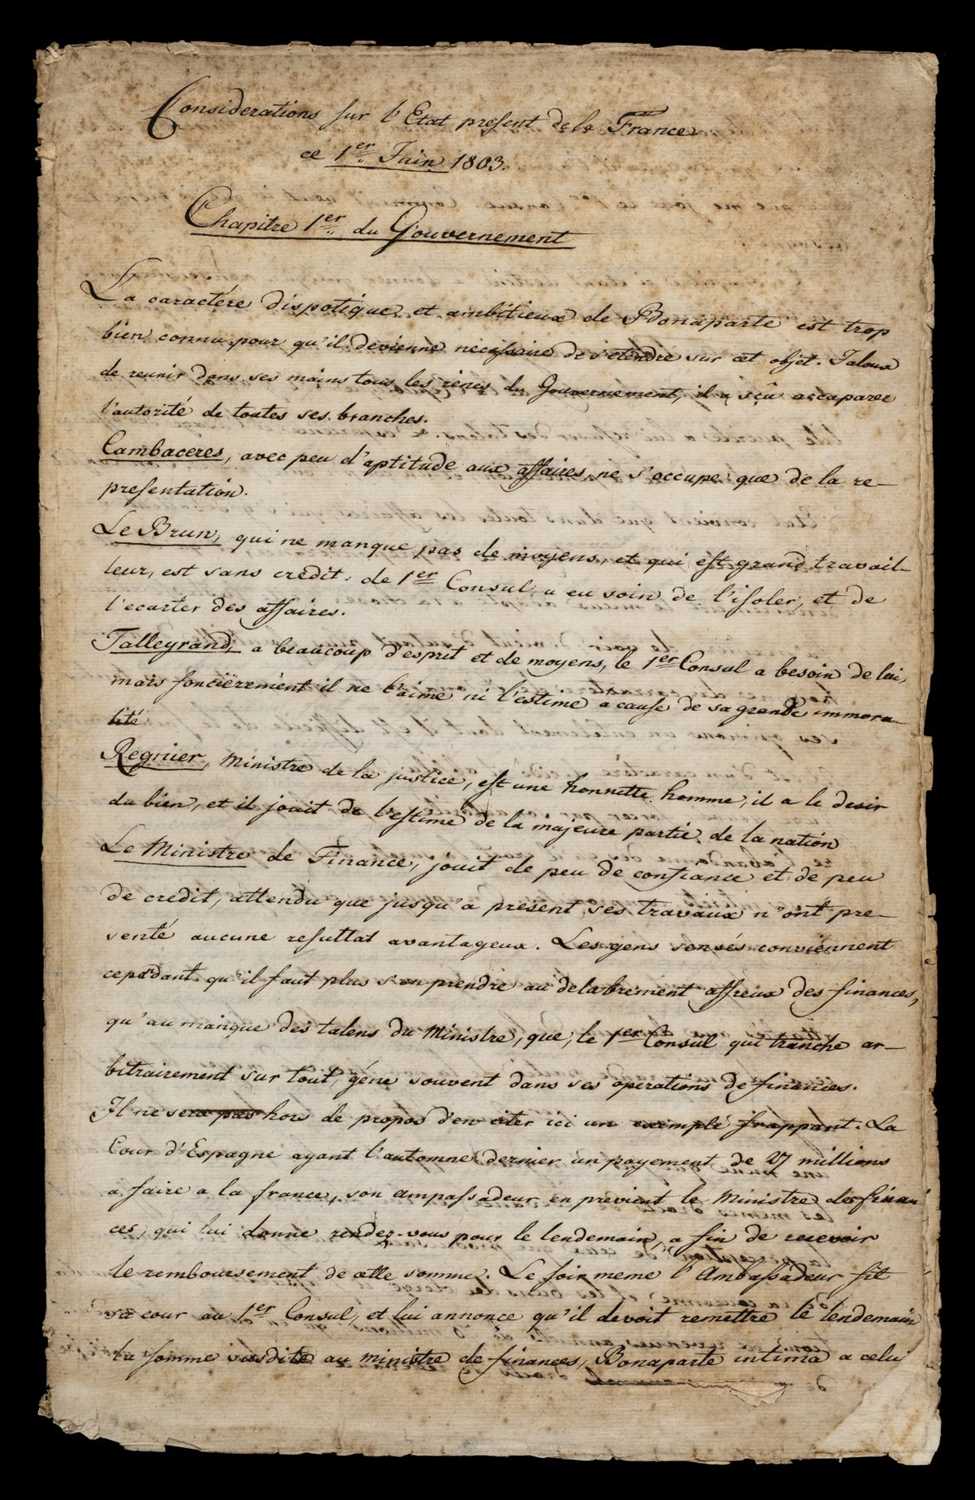 Considerations sur l'Etat present de la France
ce 1er Juin 1803.
Chapitre 1er du Gouvernement
Le caractère dispotique et ambitieux de Bonaparte est trop
bien connu pour qu'il devienne nécessaire de s'etendre sur cet objet. Jaloux
de reunir dans ses mains tous les renes du Gouvernement, il a sçû accaparer
l'autorité de toutes ses branches.
Cambaceres, avec peu d'aptitude aux affaires, ne s'occupe que de la re-
presentation.
Le Brun, qui ne manque pas de moyens, et qui est grand travail-
leur, est sans credit. de 1er Consul a eu soin de l'isoler, et de
l'ecarter des affaires.
Talleyrand, a beaucoup d'esprit et de moyens, le 1er Consul a besoin de lui,
mais fonciérement il ne l'aime ni l'estime a cause de sa grande immora-
lité
Regnier, Ministre de la justice, est une honnette homme, il a le desir
du bien, et il jouit de l'estime de la majeure partie de la nation
Le Ministre de Finance, jouit de peu de confiance et de peu
de credit, attendu que jusqu'a présent, ses travaux n'ont pre-
senté aucune resultat avantageux. Les gens sensés conviennent
cependant qu'il faut plus s'en prendre au délabrement affreux des finances,
qu'au manque des talens du Ministre, que, le 1er Consul qui tranche ar-
bitrairement sur tout, géne souvent dans ses operations de finances.
Il ne sera pas hors de propos d'en citer ici un exemple frappant. La
Cour d'Espagne ayant l'automne dernier un payement de 27 millions
a faire a la france, son ampassadeur en prévient le Ministre des finan-
ces, qui lui donne rendez-vous pour le lendemain, a fin de recevoir
le remboursement de cette somme. Le soir meme l'Ambassadeur fit
sa cour au 1er Consul, et lui annonce qu'il devoit remettre le lendemain
la somme susdite au ministre de finances, Bonaparte intima a celui